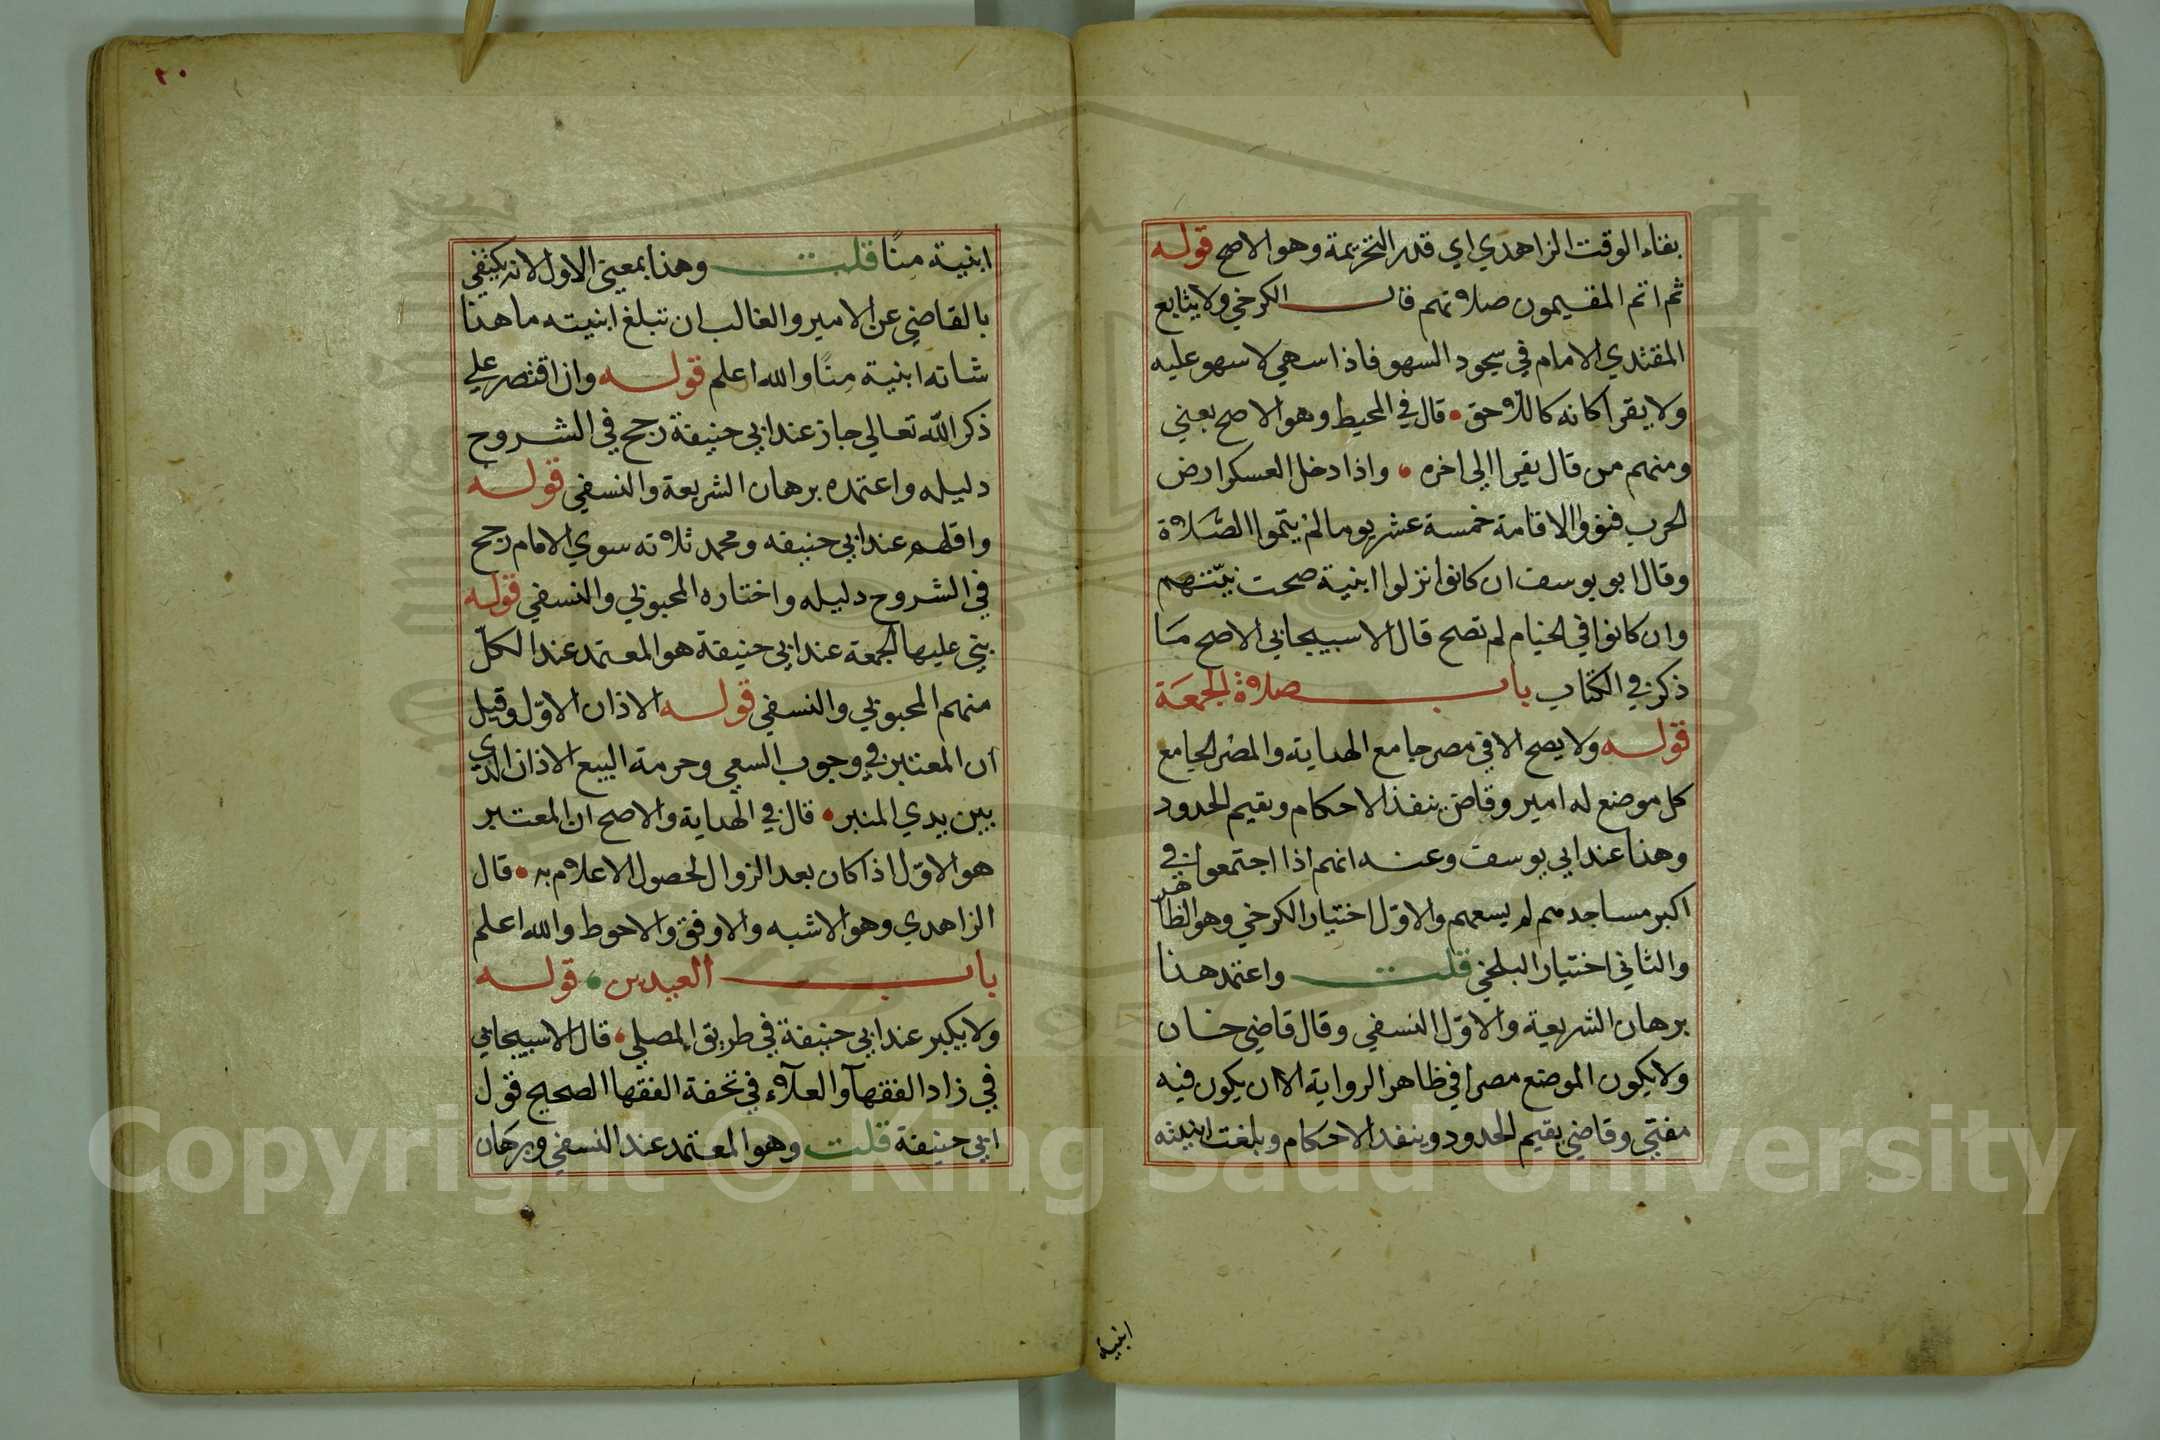 بقاء الوقت الزاهدي اي قدر التحريمة وهو الاصح قوله
ثم اتم المقيمون صلاتهم قال الكرخي ولا يتابع
المقتدي الامام في سجود السهو فاذا سهي لا سهو عليه
ولا يقرا كانه كاللاحق • قال في المحيط وهو الاصح يعني
ومنهم من قال يقرا الى اخره • واذا دخل العسكر ارض
الحرب فنووا الاقامة خمسة عشر يوما لم يتموا الصلاة
وقال ابو يوسف ان كانوا نزلوا ابنية صحت نيتهم
وان كانوا في الخيام لم تصح قال الاسبيجابي الاصح مَا
ذكر في الكتاب باب صلاة الجمعَة
قوله ولا يصح الا في مصر جامع الهداية والمصر الجامع
كل موضع له امير وقاض ينفذ الاحكام ويقيم الحدود
وهذا عند ابي يوسف وعنه انهم اذا اجتمعوا في
اكبر مساجدهم لم يسعهم والاول اختيار الكرخي وهو الظاهر
والثاني اختيار البلخي قلت واعتمد هذا
برهان الشريعة والاوّل النسفي وقال قاضي خان
ولا يكون الموضع مصرا في ظاهر الرواية الا ان يكون فيه
مفتي وقاضي يقيم الحدود وينفد الاحكام وبلغت ابنيته
ابنية
٢٠
ابنية مِنًا قلت وهذا بمعنى الاول لانه يكتفي
بالقاضي عن الامير والغالب ان تبلغ ابنيته ما هذا
شانه ابنية مِنًا والله اعلم قوله وان اقتصر علي
ذكر الله تعالي جاز عند ابي حنيفة رجح في الشروح
دليله واعتمده برهان الشريعة والنسفي قوله
واقلهم عند ابي حنيفه ومحمد ثلاثه سوي الامام رجح
في الشروح دليله واختاره المحبوبي والنسفي قوله
بني عليها الجمعة عند ابي حنيفة هو المعتمد عند الكلّ
منهم المحبوبي والنسفي قوله الاذان الاوّل وقيل
ان المعتبر في وجوب السعي وحرمة البيع الاذان الذي
بين يدي المنبر • قال في الهداية والاصح ان المعتبر
هو الاوّل اذا كان بعد الزوال لحصول الاعلام به • قال
الزاهدي وهو الاشبه والاوفق والاحوط والله اعلم
باب العيدين • قوله
ولا يكبر عند ابي حنيفة في طريق المصلي • قال الاسبيجابي
في زاد الفقهآ والعلآء في تحفة الفقها الصحيح قول
ابي حنيفة قلت وهو المعتمد عند النسفي وبرهَان
Copyright © King Saud University